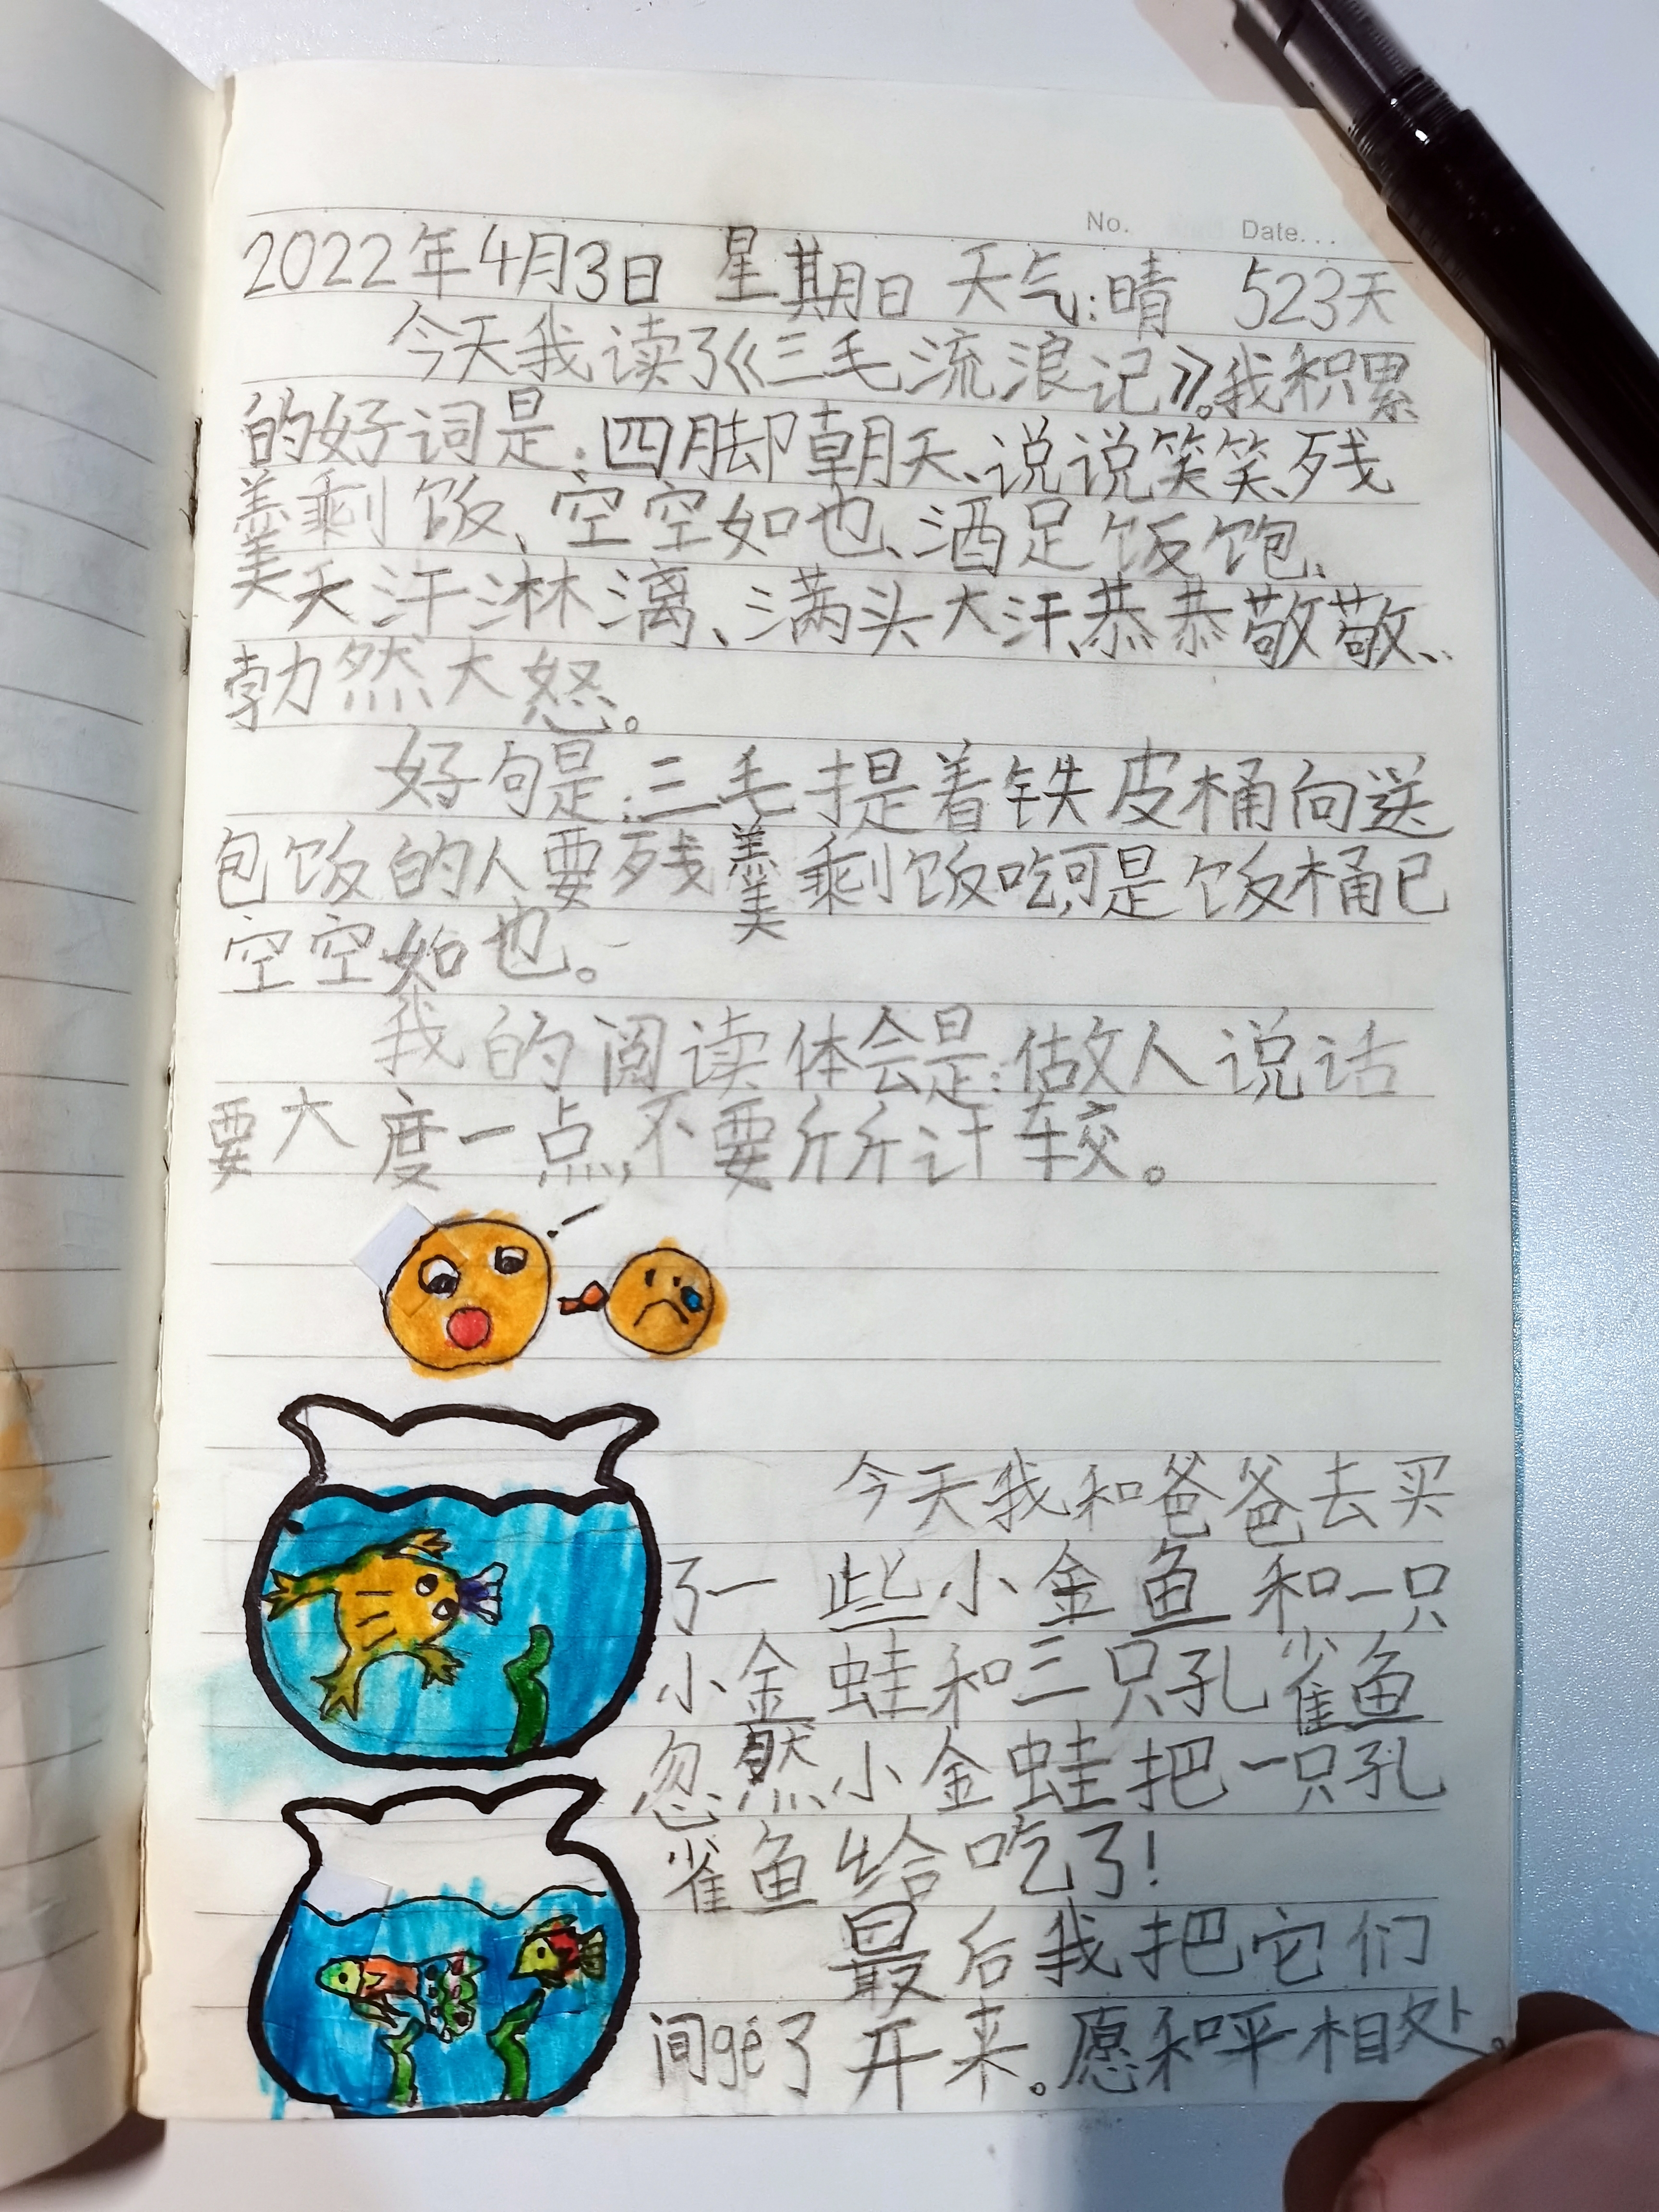 No. Date...
2022年4月3日 星期日 天气:晴 523天
今天我读了《三毛流浪记》。我积累
的好词是:四脚朝天、说说笑笑、残
羹剩饭、空空如也、酒足饭饱、
天汗淋漓、满头大汗、恭恭敬敬、
勃然大怒。
好句是:三毛提着铁皮桶向送
包饭的人要残羹剩饭吃,可是饭桶已
空空如也。
我的阅读体会是:做人说话
要大度一点,不要斤斤计较。
今天我和爸爸去买
了一些小金鱼和一只
小金蛙和三只孔雀鱼
忽然小金蛙把一只孔
雀鱼给吃了!
最后我把它们
间gé了开来。愿和平相处。